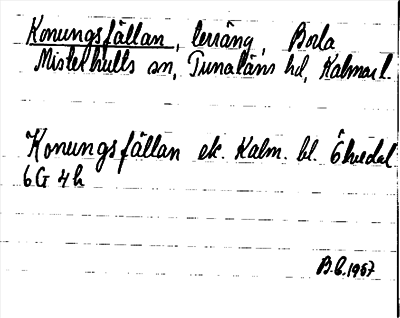 Konungsfällan, terräng, Borla
Misterhults sn, Tunaläns hd, Kalmar l.
Konungsfällan ek. Kalm. bl. Ölvedal
6G 4h
B.C. 1967